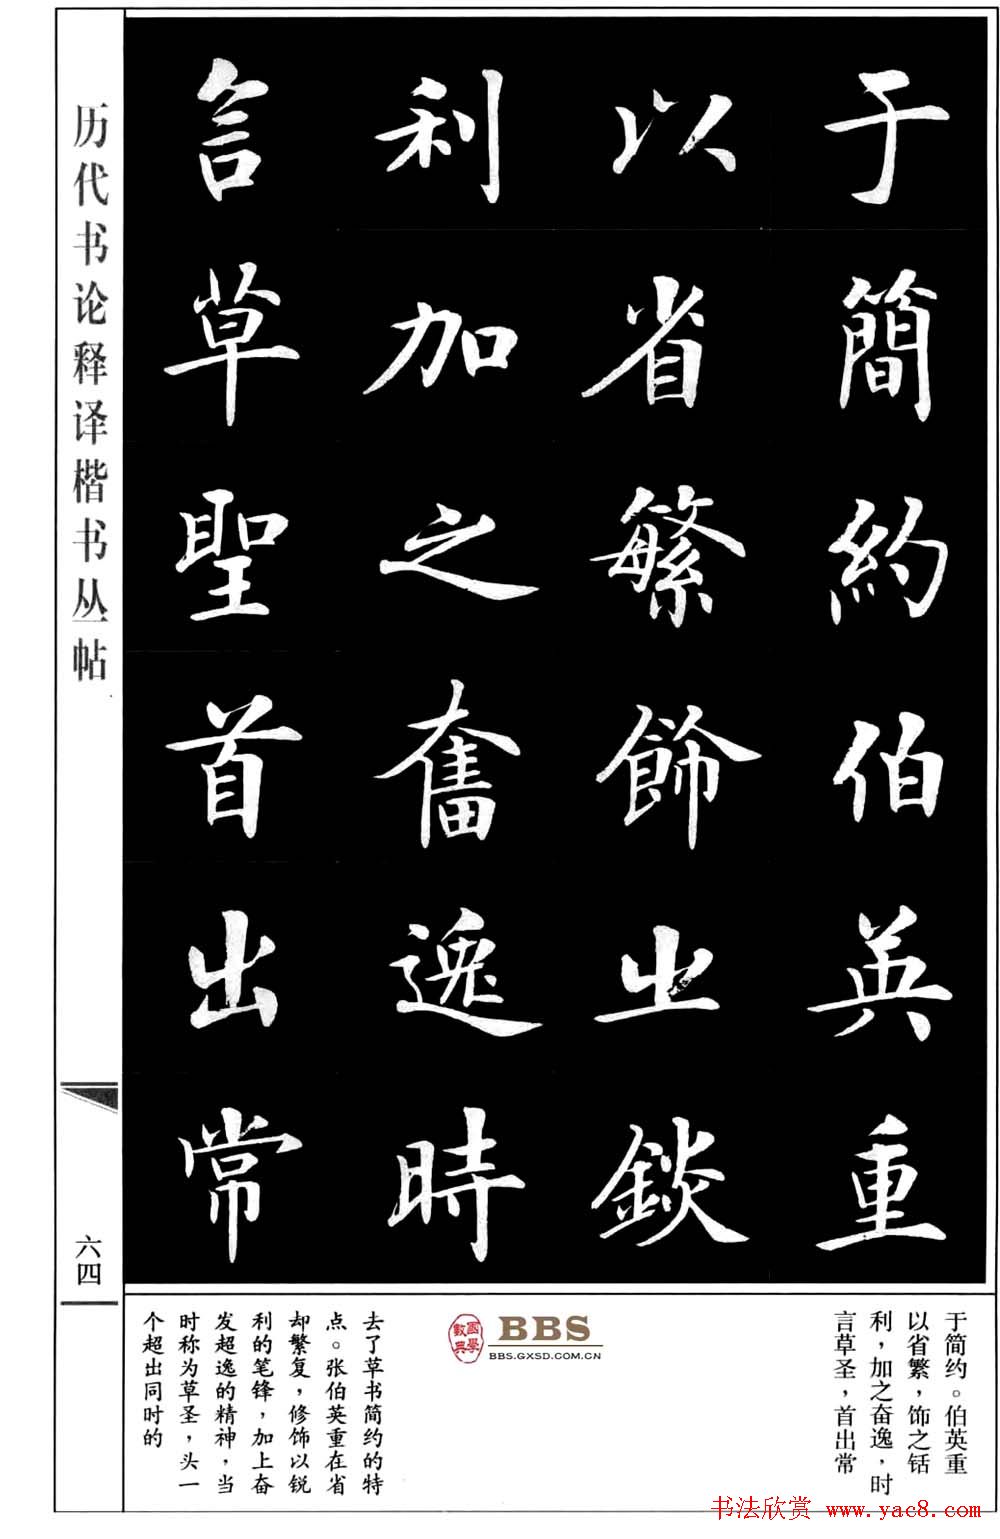 于簡約伯英重
以省繁飾之錟
利加之奮逸時
言草聖首出常
历代书论释译楷书丛帖
六四
于简约。伯英重
以省繁，饰之铦
利，加之奋逸，时
言草圣，首出常
國學
數典
BBS
BBS.GXSD.COM.CN
去了草书简约的特
点。张伯英重在省
却繁复，修饰以锐
利的笔锋，加上奋
发超逸的精神，当
时称为草圣，头一
个超出同时的
书法欣赏 www.yac8.com